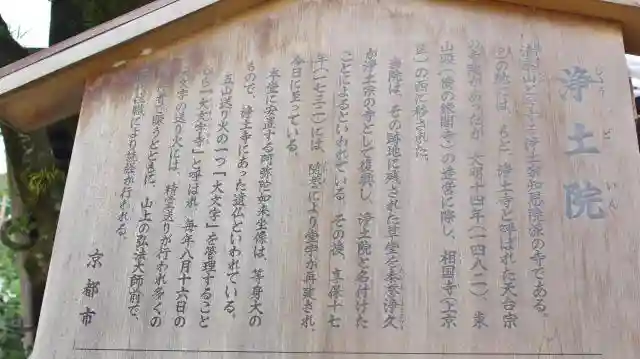 浄土院
じょう ど いん
と号する浄土宗知恩院派の寺である。
この地には、もと、浄土寺と呼ばれた天台宗
寺院があったが、文明十四年(一四八二)、東
山殿(後の銀閣寺)の造営に際し、相国寺(上京
区)の西に移された。
当院は、その跡地に残された草堂を泰誉浄久
が浄土宗の寺として復興し、浄土院と名付けた
ことによるといわれている。その後、享保十七
年(一七三二)には、随誉により堂宇が再建され、
今日に至っている。
本堂に安置する阿弥陀如来坐像は、等身大の
もので、浄土寺にあった遺仏といわれている。
五山送り火の一つ「大文字」を管理すること
「大文字寺」と呼ばれ、毎年八月十六日の
大文字の送り火には、精霊送りが行われ多くの
で賑うとともに、山上の弘法大師前で、
により読経が行われる。
京都市